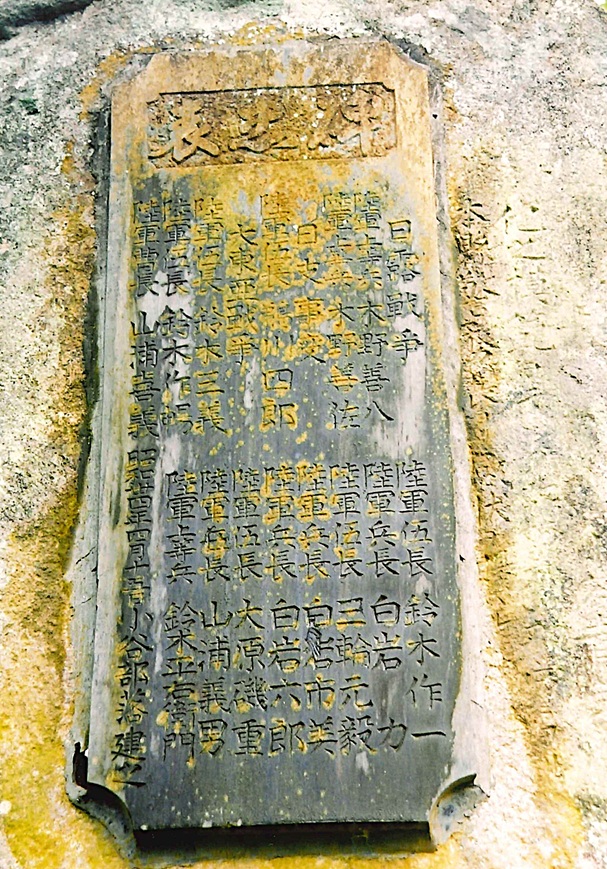 表忠碑
日露戰争
陸軍上等兵 木野善八
陸軍上等兵 木野善佐
日支事変
陸軍伍長 四郎
大東亜戰争
陸軍伍長 鈴木三義
陸軍伍長 鈴木作
陸軍曹長 山浦喜義
陸軍伍長 鈴木作一
陸軍兵長 白岩力
陸軍伍長 三輪元毅
陸軍兵長 白岩市美
陸軍兵長 白岩六郎
陸軍伍長 大原磯重
陸軍兵長 山浦義男
陸軍上等兵 鈴木正右衛門
小谷部落建之